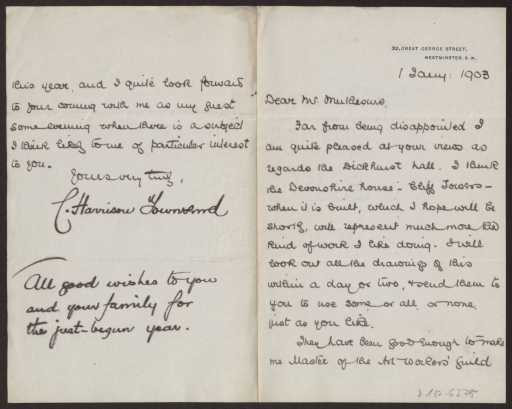 32, GREAT GEORGE STREET,
WESTMINSTER. S.W.
1 Jany: 1903
Dear Mr. Muthesius,
Far from being disappointed I
am quite pleased at your views as
regards the Bickhurst Hall. I think
the Devonshire house - Cliff Towers -
when it is built, which I hope will be
shortly, will represent much more the
kind of work I like doing. I will
look out all the drawings of this
within a day or two, & send them to
you to use some or all or none
just as you like.
They have been good enough to make
me Master of the Art Workers' Guild
this year, and I quite look forward
to your coming with me as my guest
some evening when there is a subject
I think likely to be of particular interest
to you.
Yours very truly,
C. Harrison Townsend
All good wishes to you
and your family for
the just-begun year.